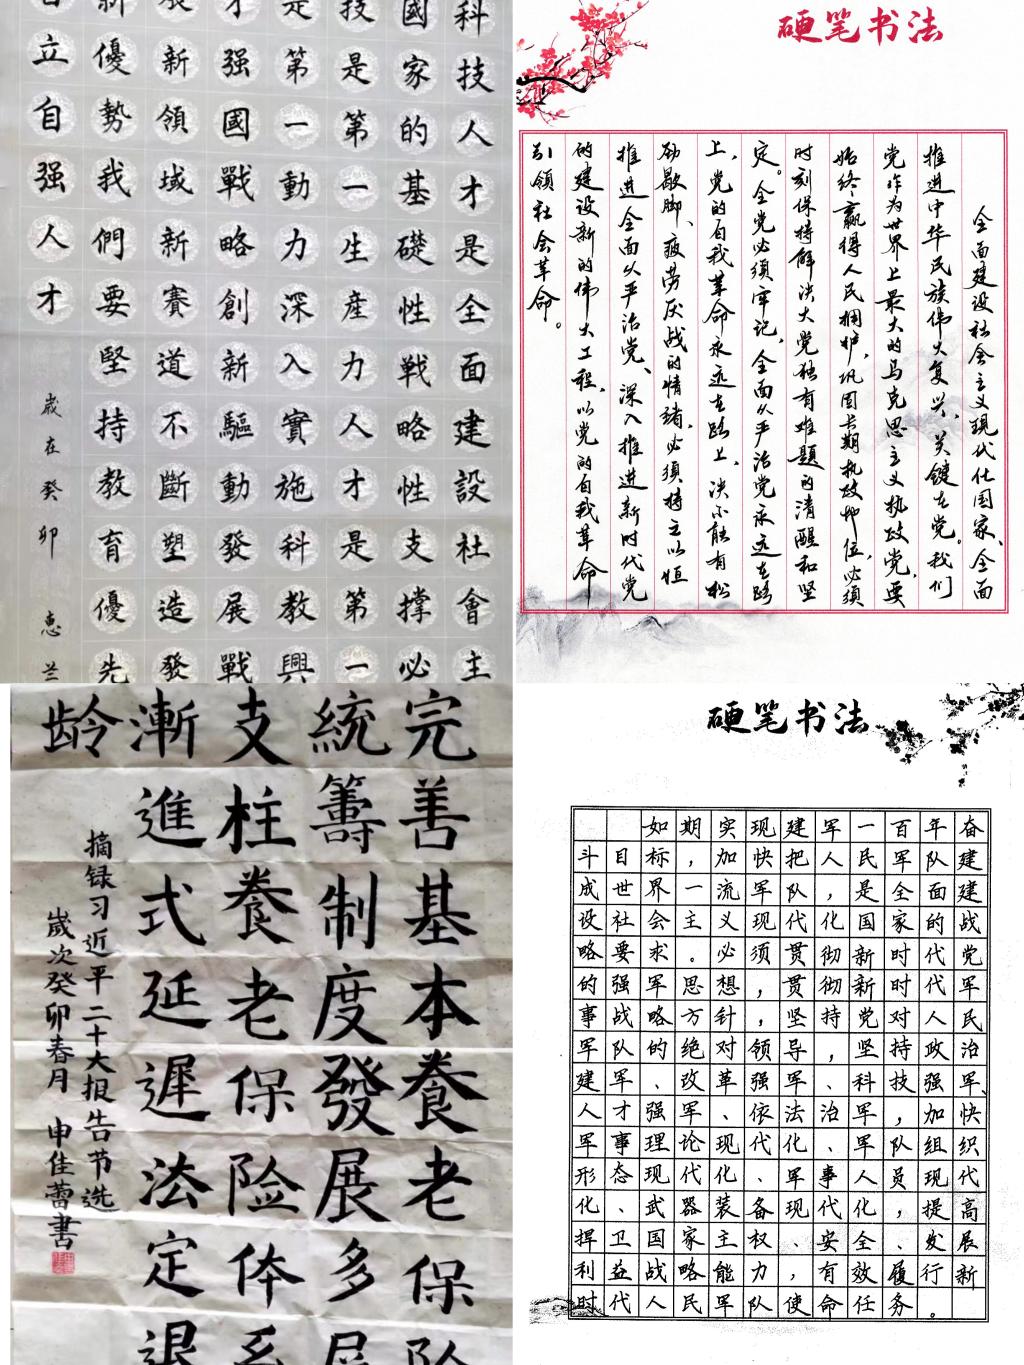 科技人才是全面建設社會主
國家的基礎性戰略性支撐必
技是第一生産力人才是第一
是第一動力深入實施科教興
才强國戰略創新驅動發展戰
展新領域新賽道不斷塑造發
新優勢我們要堅持教育優先
立自强人才
歲在癸卯 惠兰
硬笔书法
全面建设社会主义现代化国家、全面
推进中华民族伟大复兴，关键在党。我们
党作为世界上最大的马克思主义执政党，要
始终赢得人民拥护、巩固长期执政地位，必须
时刻保持解决大党独有难题的清醒和坚
定。全党必须牢记，全面从严治党永远在路
上，党的自我革命永远在路上，决不能有松
劲歇脚、疲劳厌战的情绪，必须持之以恒
推进全面从严治党、深入推进新时代党
的建设新的伟大工程，以党的自我革命
引领社会革命。
完善基本養老保
統籌制度發展多
支柱養老保险体系
漸進式延遲法定退
龄
摘録习近平二十大报告节选
歲次癸卯春月 申佳蕾書
硬笔书法
如期实现建军一百年奋
斗目标，加快把人民军队建
成世界一流军队，是全面建
设社会主义现代化国家的战
略要求。必须贯彻新时代党
的强军思想，贯彻新时代军
事战略方针，坚持党对人民
军队的绝对领导，坚持政治
建军、改革强军、科技强军、
人才强军、依法治军，加快
军事理论现代化、军队组织
形态现代化、军事人员现代
化、武器装备现代化，提高
捍卫国家主权、安全、发展
利益战略能力，有效履行新
时代人民军队使命任务。